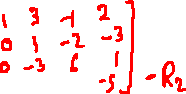 1 3 -1 2
0 1 -2 -3
0 -3 6 1
-5 -R₂